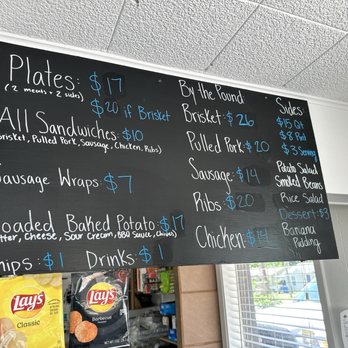 Plates: $17
(2 meats + 2 sides)
$20 if Brisket
All Sandwiches: $10
Brisket, Pulled Pork, Sausage, Chicken, Ribs)
Sausage Wraps: $7
Loaded Baked Potato: $17
Butter, Cheese, Sour Cream, BBQ Sauce, Chives)
Chips: $1 Drinks: $1
By the Pound
Brisket: $26
Pulled Pork $20
Sausage: $14
Ribs: $20
Chicken: $14
Sides:
$15 Qt
$8 Pint
$3 Serving
Potato Salad
Smoked Beans
Rice Salad
Dessert: $3
Banana
Pudding
Lay's
Classic
Lay's
Barbecue